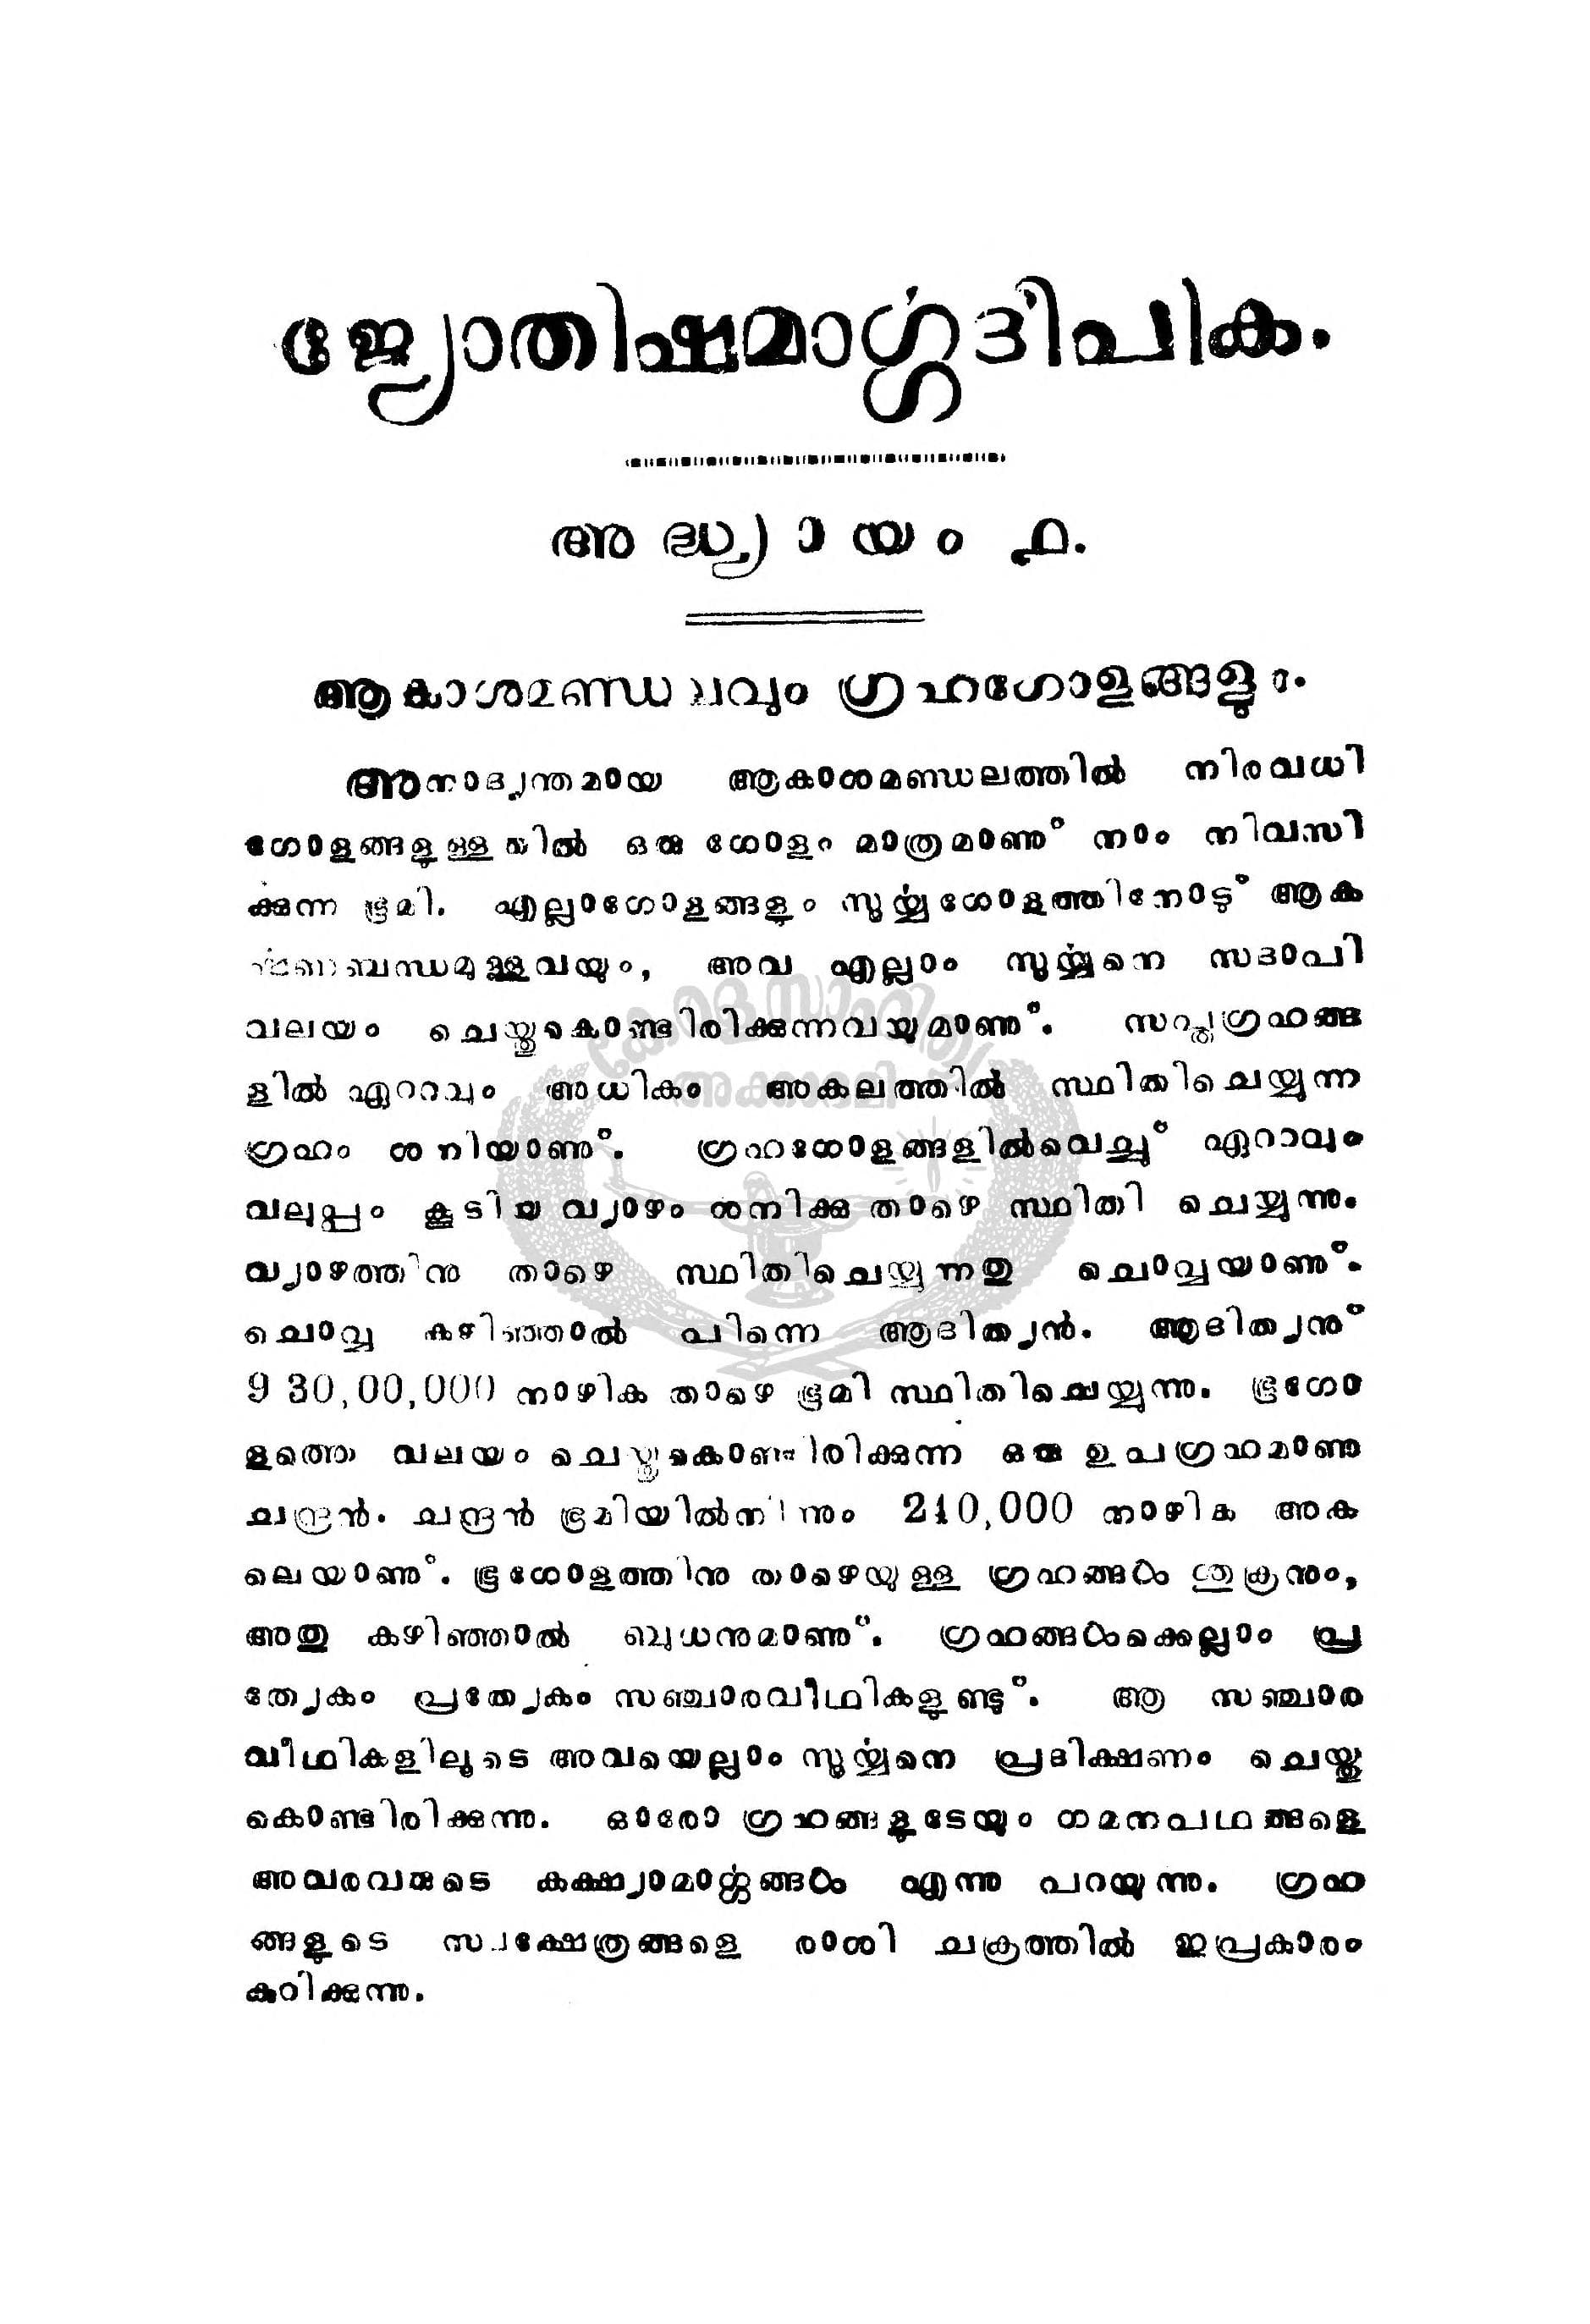 ജ്യോതിഷമാൎഗ്ഗദീപിക.
അദ്ധ്യായം ൧.
ആകാശമണ്ഡലവും ഗ്രഹഗോളങ്ങളും.
അനാദ്യന്തമായ ആകാശമണ്ഡലത്തിൽ നിരവധി
ഗോളങ്ങളുള്ളതിൽ ഒരു ഗോളം മാത്രമാണു് നാം നിവസി
ക്കുന്ന ഭൂമി. എല്ലാഗോളങ്ങളും സൂൎയ്യഗോളത്തിനോടു് ആക
ൎഷണബന്ധമുള്ളവയും, അവ എല്ലാം സൂൎയ്യനെ സദാപി
വലയം ചെയ്തുകൊണ്ടിരിക്കുന്നവയുമാണു്. സപ്തഗ്രഹങ്ങ
ളിൽ ഏററവും അധികം അകലത്തിൽ സ്ഥിതിചെയ്യുന്ന
ഗ്രഹം ശനിയാണു്. ഗ്രഹഗോളങ്ങളിൽവെച്ചു് ഏറാവും
വലുപ്പം കൂടിയ വ്യാഴം ശനിക്കു താഴെ സ്ഥിതി ചെയ്യുന്നു.
വ്യാഴത്തിനു താഴെ സ്ഥിതിചെയ്യുന്നതു ചൊവ്വയാണു്.
ചൊവ്വ കഴിഞ്ഞാൽ പിന്നെ ആദിത്യൻ. ആദിത്യനു്
9 30,00,000 നാഴിക താഴെ ഭൂമി സ്ഥിതിചെയ്യുന്നു. ഭൂഗോ
ളത്തെ വലയം ചെയ്തുകൊണ്ടിരിക്കുന്ന ഒരു ഉപഗ്രഹമാണു
ചന്ദ്രൻ. ചന്ദ്രൻ ഭൂമിയിൽനിന്നും 240,000 നാഴിക അക
ലെയാണു്. ഭൂഗോളത്തിനു താഴെയുള്ള ഗ്രഹങ്ങൾ ശുക്രനും,
അതു കഴിഞ്ഞാൽ ബുധനുമാണു്. ഗ്രഹങ്ങൾക്കെല്ലാം പ്ര
ത്യേകം പ്രത്യേകം സഞ്ചാരവീഥികളുണ്ടു്. ആ സഞ്ചാര
വീഥികളിലൂടെ അവയെല്ലാം സൂൎയ്യനെ പ്രദിക്ഷണം ചെയ്തു
കൊണ്ടിരിക്കുന്നു. ഓരോ ഗ്രഹങ്ങളുടേയും ഗമനപഥങ്ങളെ
അവരവരുടെ കക്ഷ്യാമാൎഗ്ഗങ്ങൾ എന്നു പറയുന്നു. ഗ്രഹ
ങ്ങളുടെ സ്വക്ഷേത്രങ്ങളെ രാശി ചക്രത്തിൽ ഇപ്രകാരം
കുറിക്കുന്നു.
കേരള സാഹിത്യ
അക്കാദമി